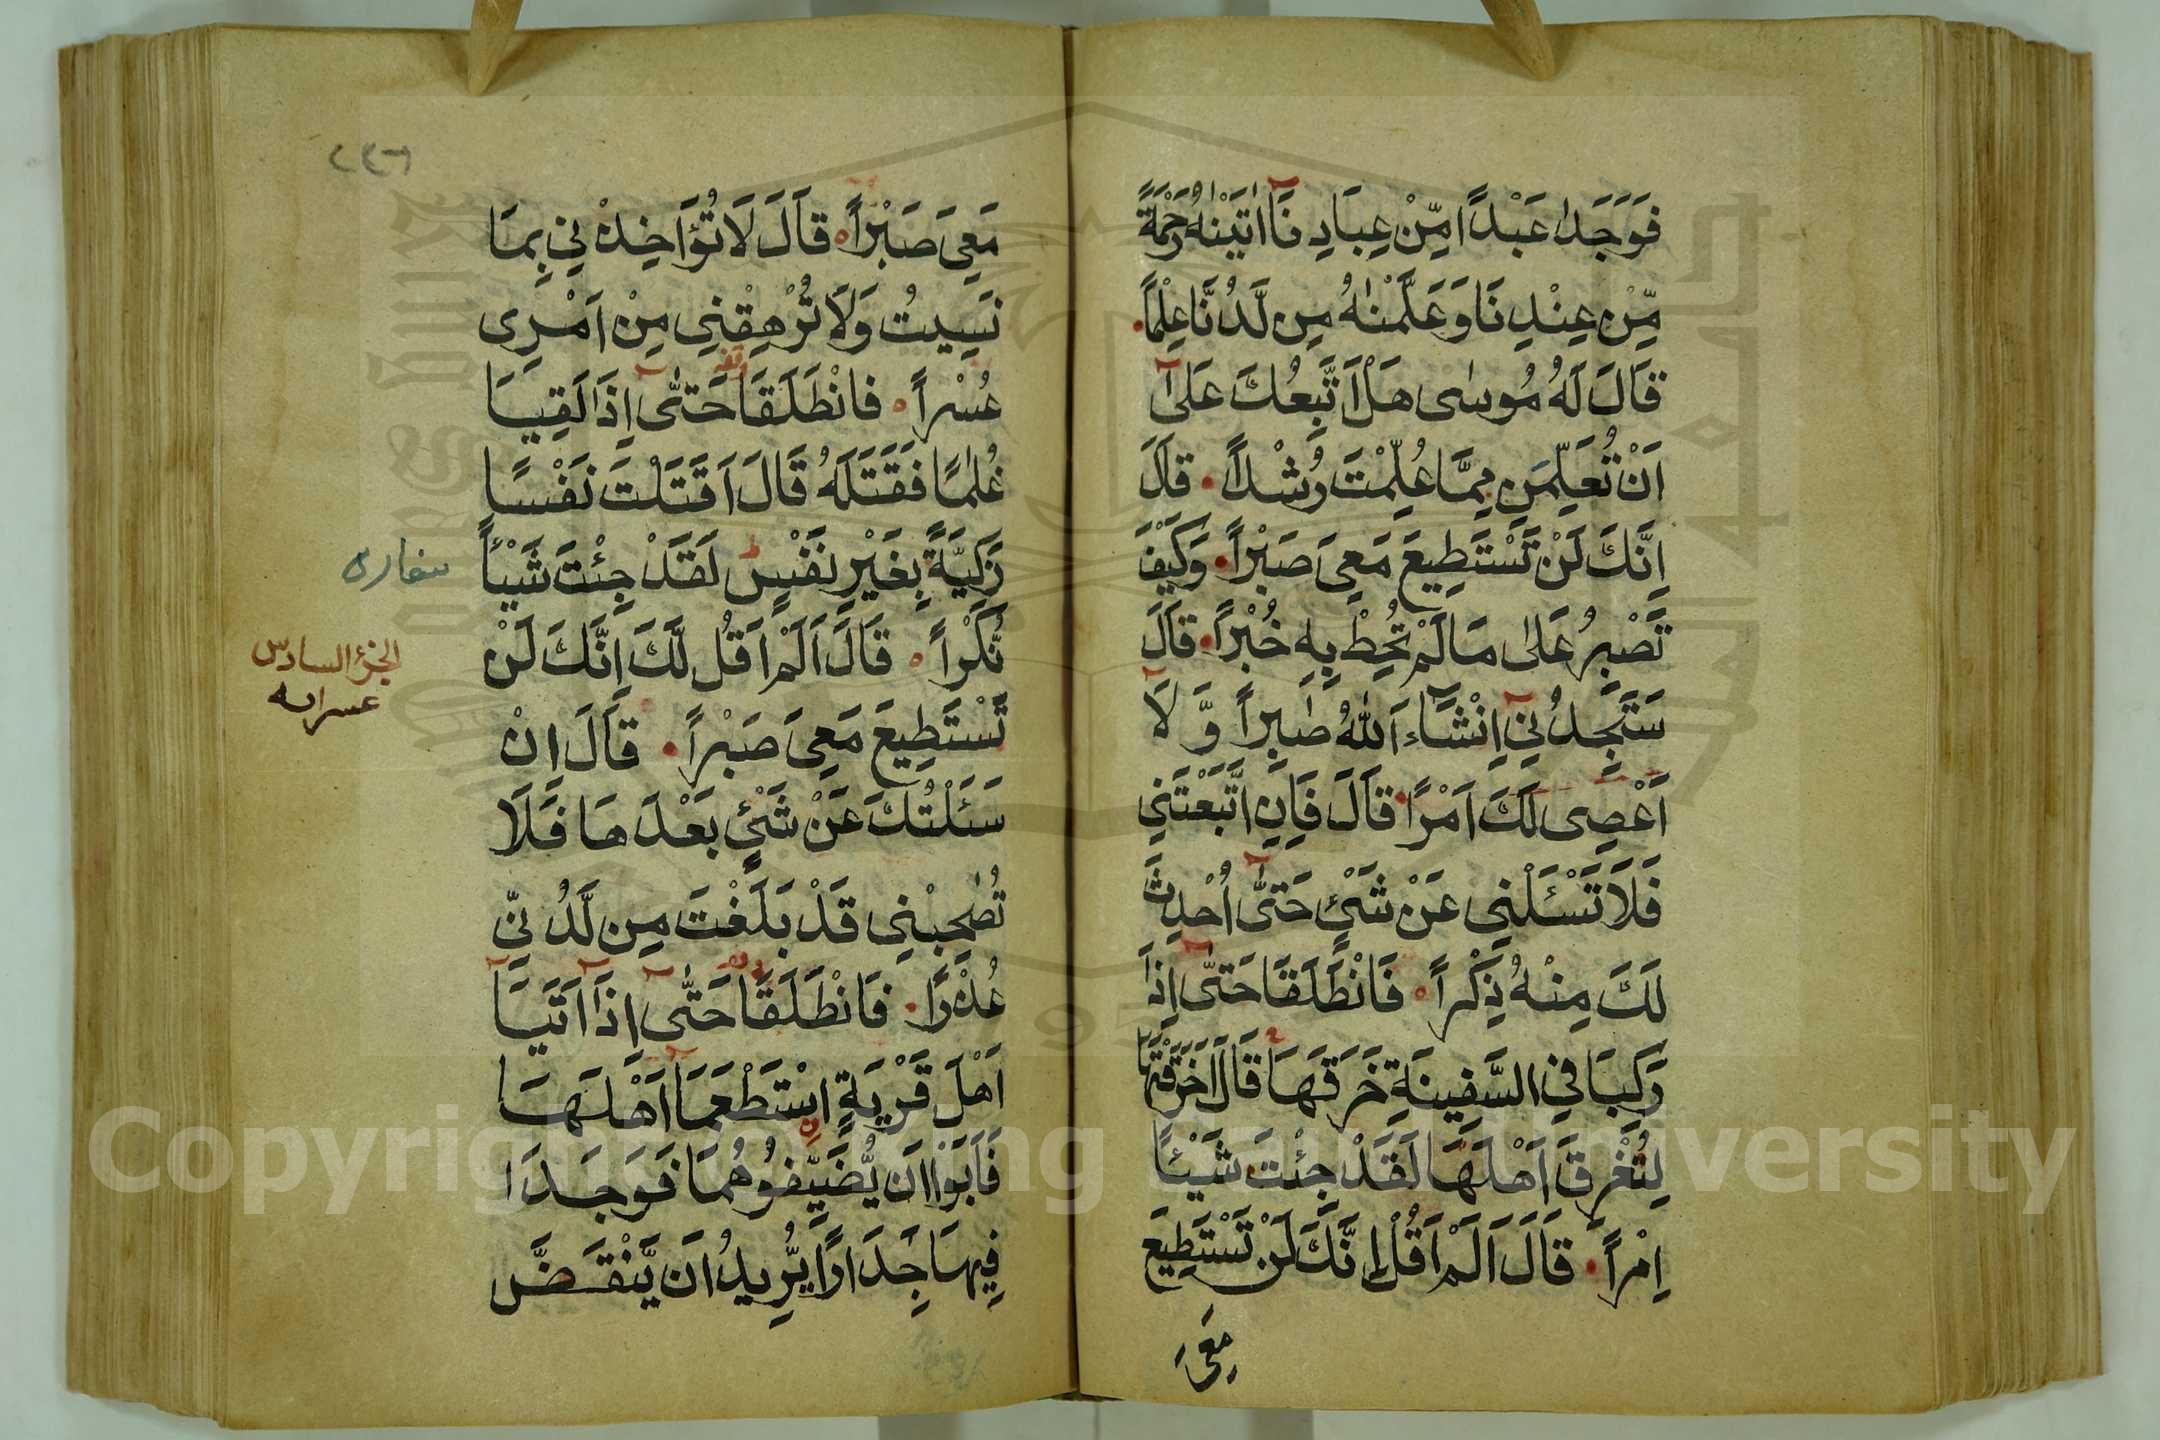 فَوَجَدَا عَبْدًا مِّنْ عِبَادِنَآ اٰتَيْنٰهُ رَحْمَةً
مِّنْ عِنْدِنَا وَعَلَّمْنٰهُ مِن لَّدُنَّا عِلْمًا
قَالَ لَهُ مُوسٰى هَلْ اَتَّبِعُكَ عَلٰىٓ
اَنْ تُعَلِّمَنِ مِمَّا عُلِّمْتَ رُشْدًا قَالَ
اِنَّكَ لَنْ تَسْتَطِيعَ مَعِىَ صَبْرًا وَكَيْفَ
تَصْبِرُ عَلٰى مَا لَمْ تُحِطْ بِهِ خُبْرًا قَالَ
سَتَجِدُنِىٓ اِنْشَآءَ اللّٰهُ صَابِرًا وَّلَآ
اَعْصِى لَكَ اَمْرًا قَالَ فَاِنِ اتَّبَعْتَنِي
فَلَا تَسْئَلْنِى عَنْ شَىْءٍ حَتّٰىٓ اُحْدِثَ
لَكَ مِنْهُ ذِكْرًا فَانْطَلَقَا حَتّٰىٓ اِذَا
رَكِبَا فِي السَّفِينَةِ خَرَقَهَا قَالَ اَخَرَقْتَهَا
لِتُغْرِقَ اَهْلَهَا لَقَدْ جِئْتَ شَيْئًا
اِمْرًا قَالَ اَلَمْ اَقُلْ اِنَّكَ لَنْ تَسْتَطِيعَ
مَعِىَ
٢٩٢
مَعِىَ صَبْرًا قَالَ لَا تُؤَاخِذْنِي بِمَا
نَسِيتُ وَلَا تُرْهِقْنِي مِنْ اَمْرِى
عُسْرًا فَانْطَلَقَا حَتّٰىٓ اِذَا لَقِيَا
غُلٰمًا فَقَتَلَهُ قَالَ اَقَتَلْتَ نَفْسًا
زَكِيَّةً بِغَيْرِ نَفْسٍ لَقَدْ جِئْتَ شَيْئًا
نُّكْرًا قَالَ اَلَمْ اَقُل لَّكَ اِنَّكَ لَنْ
تَسْتَطِيعَ مَعِىَ صَبْرًا قَالَ اِنْ
سَئَلْتُكَ عَنْ شَىْءٍ بَعْدَهَا فَلَا
تُصٰحِبْنِى قَدْ بَلَغْتَ مِن لَّدُنِّي
عُذْرًا فَانْطَلَقَا حَتّٰىٓ اِذَآ اَتَيَآ
اَهْلَ قَرْيَةٍ اسْتَطْعَمَآ اَهْلَهَا
فَاَبَوْا اَن يُّضَيِّفُوهُمَا فَوَجَدَا
فِيهَا جِدَارًا يُّرِيدُ اَن يَّنْقَضَّ
الجزؤ السادس
عشر
Copyright © King Saud University